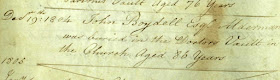 Vault Aged 78 Years
Decr 19th 1804 John Boydell Esqr Alderman
was buried in the Rectors Vault in
the Church Aged 86 Years
1805